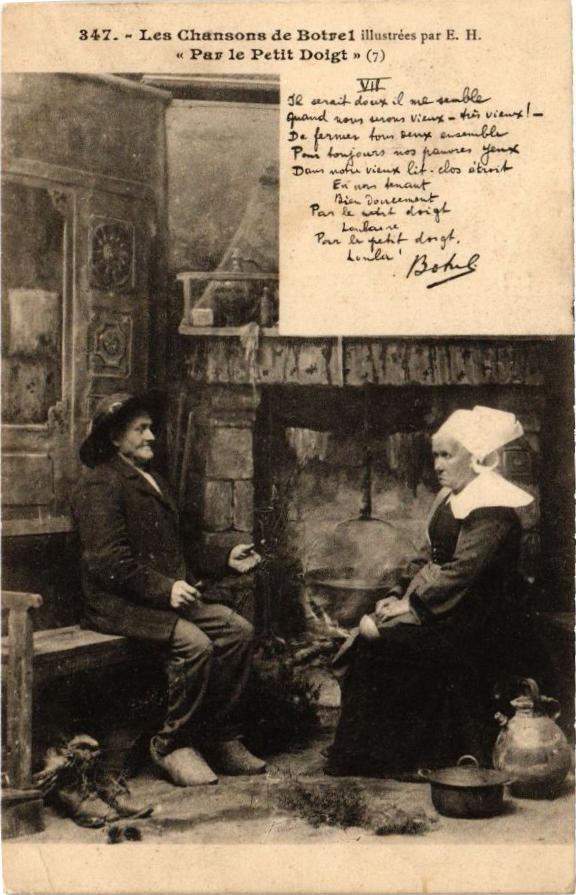 347. - Les Chansons de Botrel illustrées par E. H.
« Par le Petit Doigt » (7)
VII
Il serait doux il me semble
Quand nous serons vieux - très vieux ! -
De fermer tous deux ensemble
Pour toujours nos pauvres yeux
Dans notre vieux lit-clos étroit
En nous tenant
Bien Doucement
Par le petit doigt
Lonlaire
Par le petit doigt,
Lonla !
Botrel